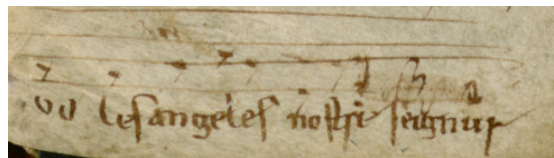 od les angeles nostre seignur